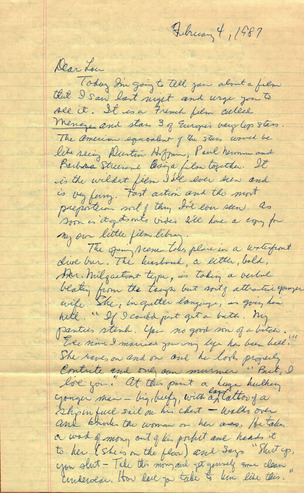 February 4, 1987
Dear Lou
Today I'm going to tell you about a film
that I saw last night and urge you to
see it. It is a French film called
Menage and stars 3 of Europe's very top stars.
The American equivalent of the stars would be
like seeing Dustin Hoffman, Paul Newman and
Barbara Streisand doing a film together. It
is the wildest film I've ever seen and
is very funny. Fast action and the most
preposterous of thing I've ever seen. As
soon as it gets onto video I'll have a copy for
my own little film library.
The opening scene takes place in a waterfront
dive bar. The husband, a little, bald,
Mr. Milquetoast type, is taking a verbal
beating from the tough but sort of attractive younger
wife. She, in gutter language, is giving him
hell. "If I could just get a bath. My
panties stink. You no good son of a bitch.
Ever since I married you my life has been hell."
She raves on and on and he looks properly
contrite and only murmurs "But, I
love you." At this point a huge hulking
younger man - big, beefy, with a tattoo of a
ship in full sail on his chest - walks over
and the woman on her ass. He takes
a wad of money out of his pocket and hands it
to her (she is on the floor) and says "Shut up,
you slut - Take this money and get yourself some clean
underwear. How dare you talk to him like this."